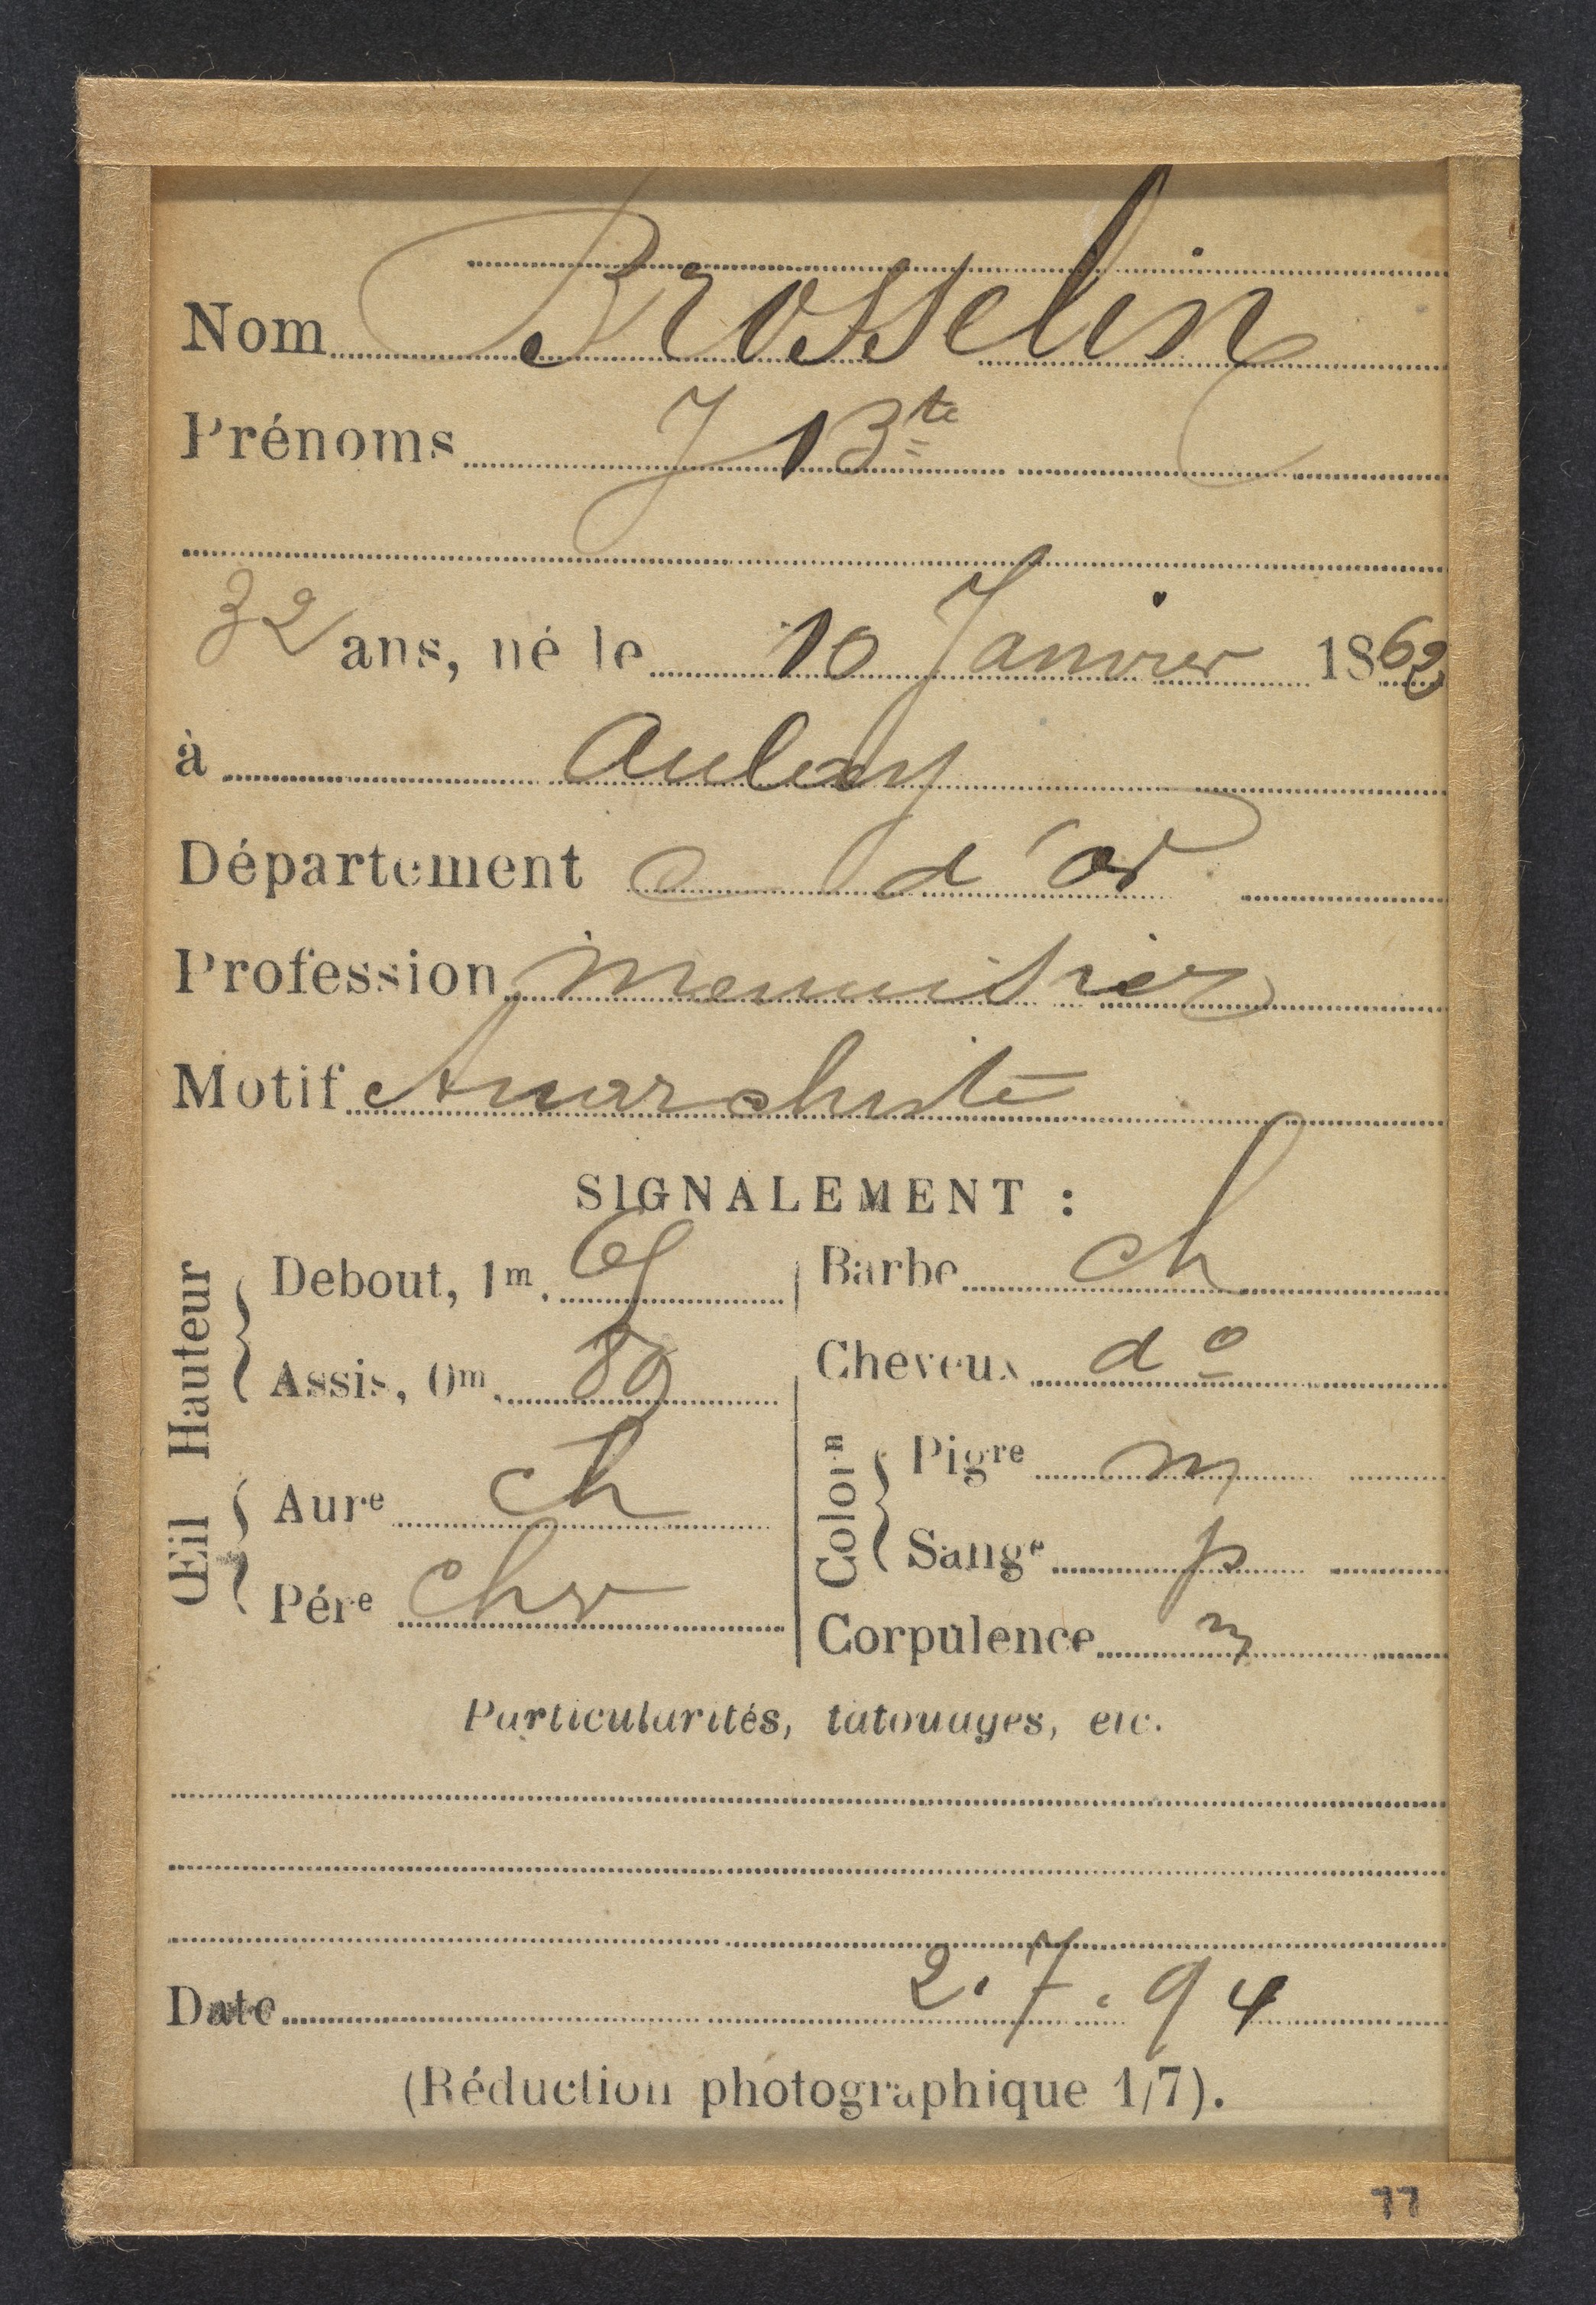 Nom Brosselin
Prénoms J Bte
32 ans, né le 10 Janvier 1862
à Auloxy
Département C d'or
Profession Menuisier
Motif Anarchiste
SIGNALEMENT :
Hauteur
Debout, 1m. 69
Assis, 0m. 89
Œil
Aure ch
Pére
Barbe ch
Cheveux do
Colorn
Pigre m
Sange p
Corpulence m
Particularités, tatouages, etc.
Date 2.7.94
(Réduction photographique 1/7).
77